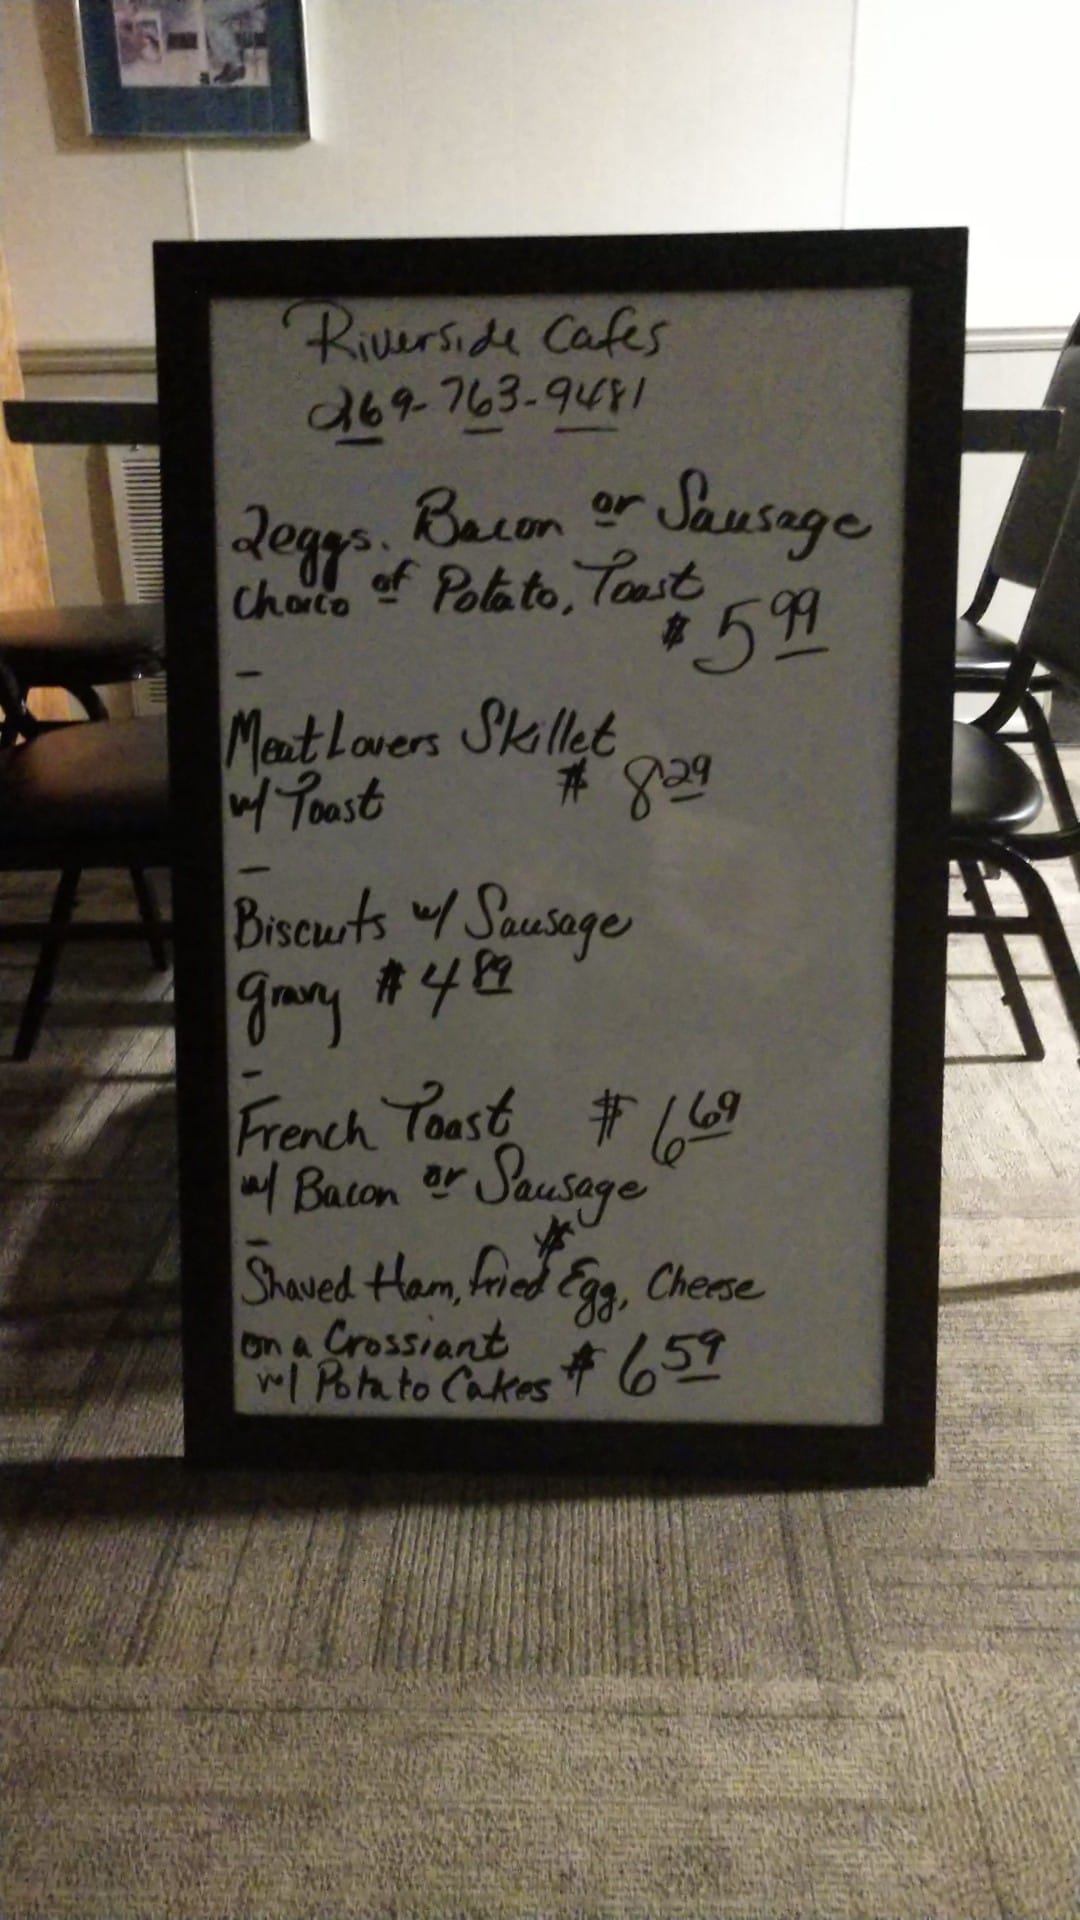 Riverside Cafes
269-763-9481
2eggs. Bacon or Sausage
Choice of Potato, Toast
$ 5 99
-
Meat Lovers Skillet
w/ Toast $ 8 29
-
Biscuits w/ Sausage
gravy $ 4 89
-
French Toast $ 6 69
w/ Bacon or Sausage
-
$
Shaved Ham, fried Egg, Cheese
on a Crossiant
w/ Potato Cakes $ 6 59